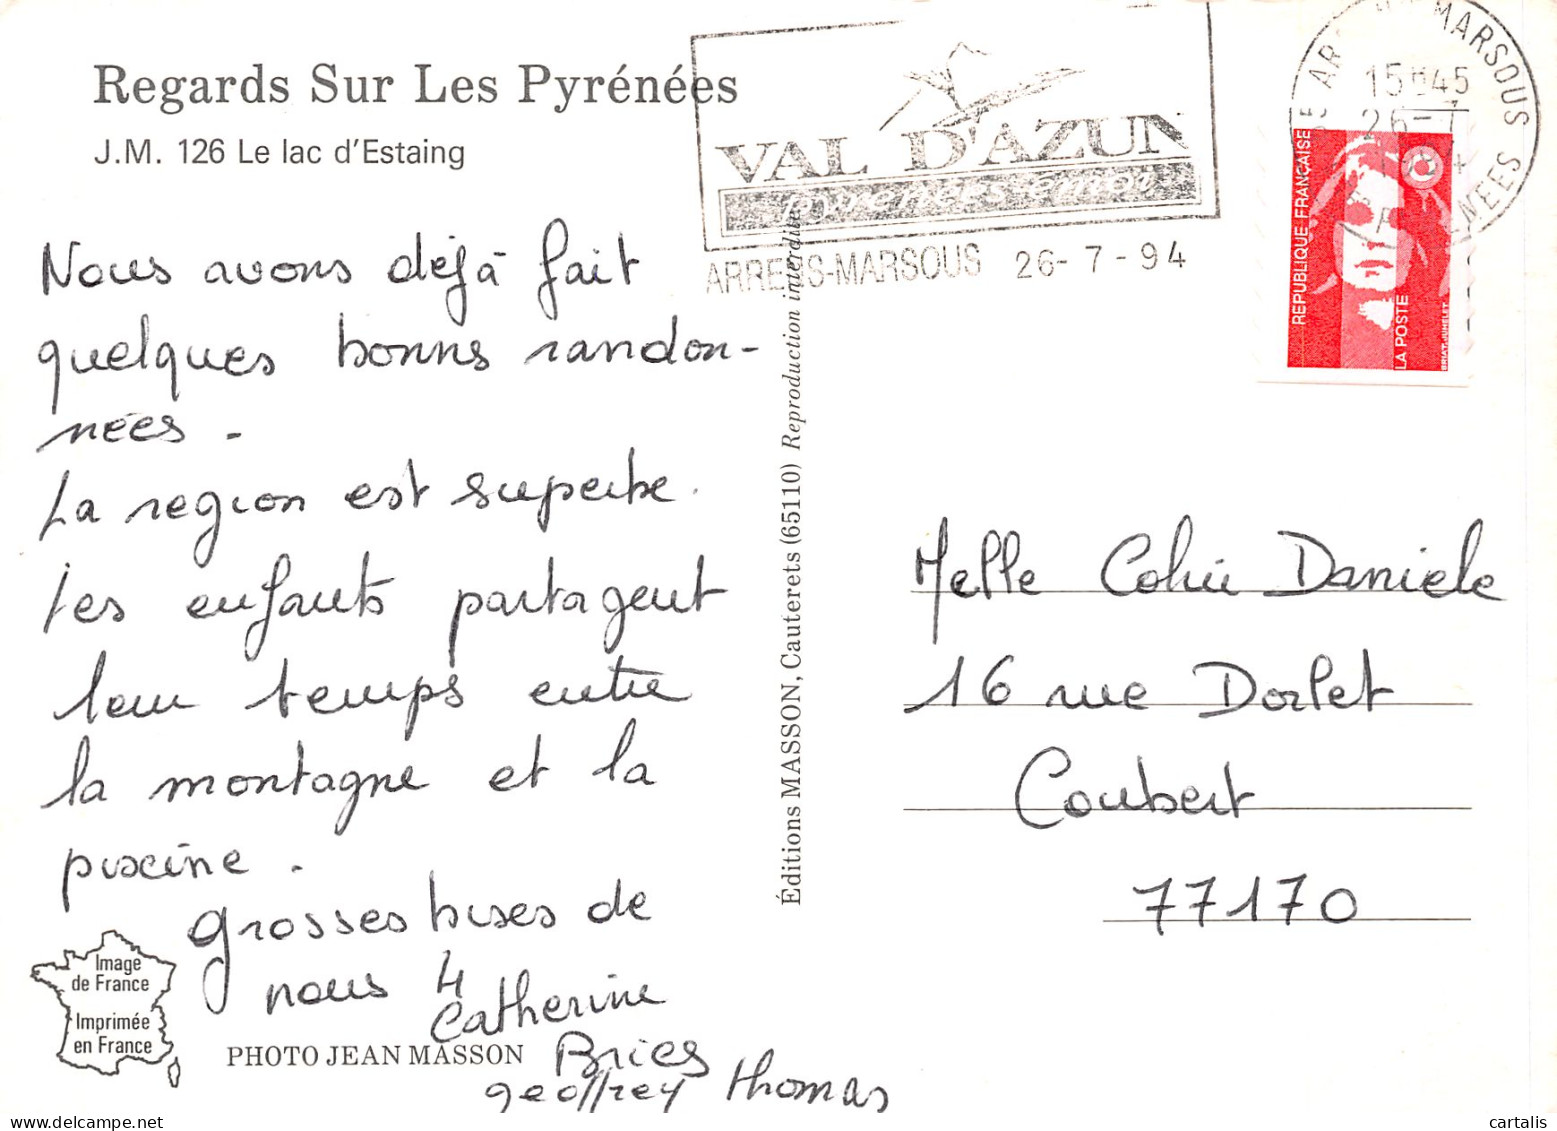 Regards Sur Les Pyrénées
J.M. 126 Le lac d'Estaing
Nous avons déjà fait
quelques bonnes randon-
nées.
La region est superbe.
Les enfants partagent
leur temps entre
la montagne et la
piscine.
Grosses bises de
nous 4
Catherine
Geoffrey Thomas
Image
de France
Imprimée
en France
PHOTO JEAN MASSON
Éditions MASSON, Cauterets (65110) Reproduction interdite
VAL D'AZUN
ARRENS-MARSOUS 26-7-94
MARSOUS
15H45
26-7
RÉPUBLIQUE FRANÇAISE
LA POSTE
BRIAT-JUMELET
Melle Daniele
16 rue Dorlet
Coubert
77170
cartalis